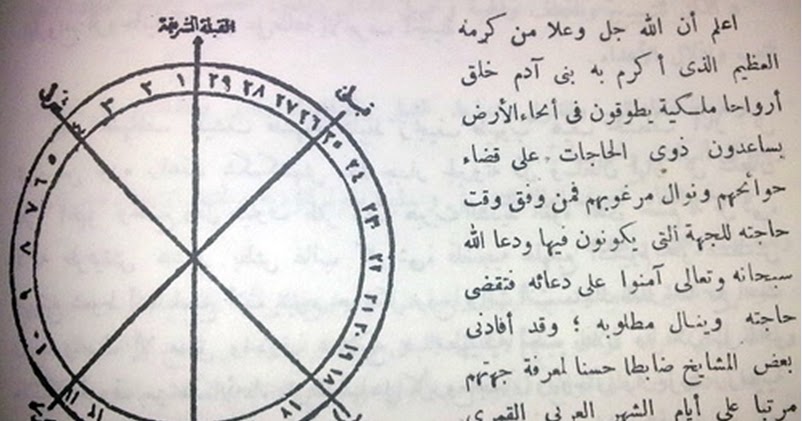 اعلم أن الله جل وعلا من كرمه
العظيم الذى أكرم به بنى آدم خلق
أرواحا ملكية يطوفون فى أنحاء الأرض
يساعدون ذوى الحاجات على قضاء
حوائجهم ونوال مرغوبهم فمن وفق وقت
حاجته للجهة التى يكونون فيها ودعا الله
سبحانه وتعالى آمنوا على دعائه فتقضى
حاجته وينال مطلوبه ؛ وقد أفادنى
بعض المشايخ ضابطا حسنا لمعرفة جهتهم
مرتبا على أيام الشهر العربى القمرى
القبلة الشريفة
١
٢
٣
٥
٦
٧
٨
٩
١٠
١١
١٢
١٨
١٨
١٩
٢٠
٢١
٢٢
٢٣
٢٤
٢٥
٢٦
٢٧
٢٨
٢٩